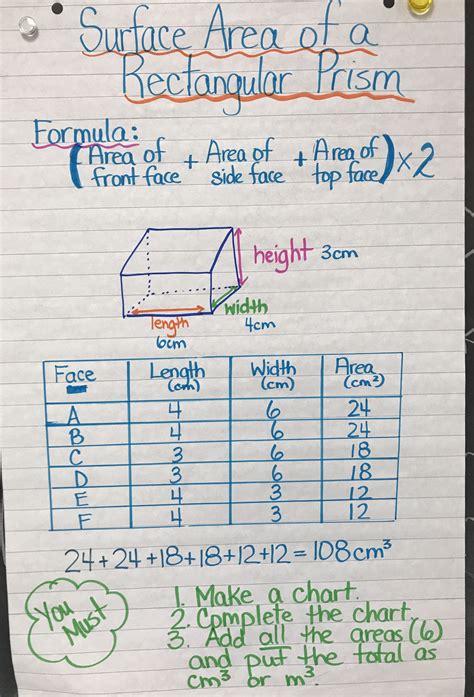 Surface Area of a
Rectangular Prism
Formula:
(Area of front face + Area of side face + Area of top face) x 2
height 3cm
width
4cm
length
6cm
Face Length (cm) Width (cm) Area (cm²)
A 4 6 24
B 4 6 24
C 3 6 18
D 3 6 18
E 4 3 12
F 4 3 12
24+24+18+18+12+12=108cm³
You Must
1. Make a chart.
2. Complete the chart.
3. Add all the areas (6)
and put the total as
cm³ or m³.